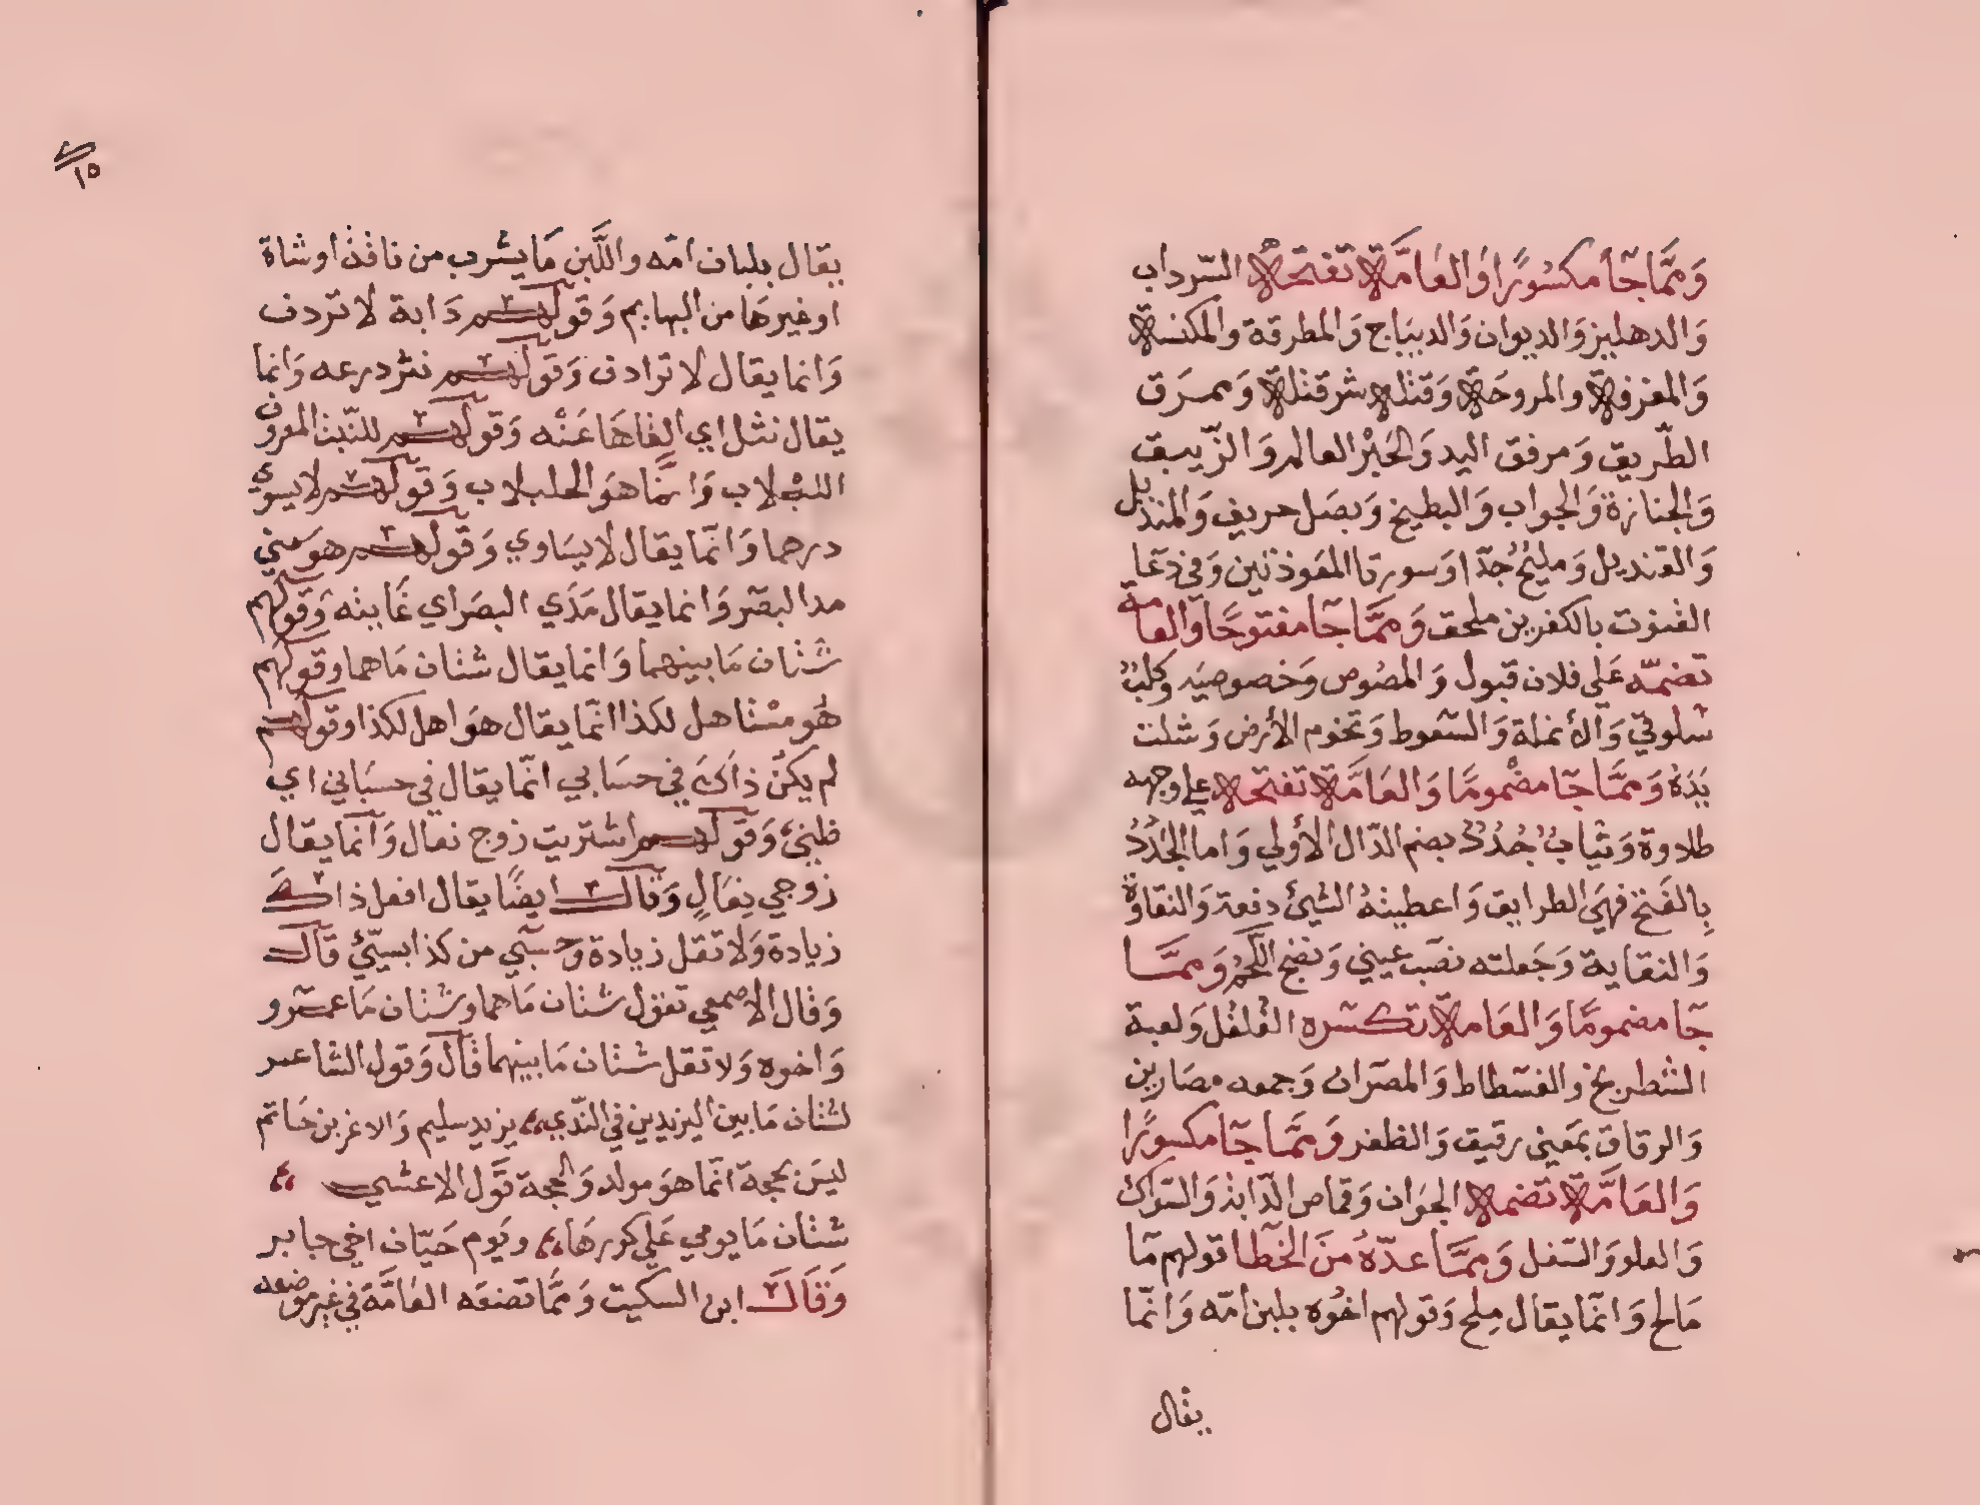 وَممَّا جَآ مكسُورًا وَالعَامَّة تفتحه السّرداب
وَالدهليز وَالديوان وَالديبَاج وَالمطرقة والمكنسة
وَالمغرفة والمروحَة وَقتله شر قتلة وَمفرق
الطّريق وَمرفق اليد وَالحَبْر العالم وَالزّيبق
وَالجنازة وَالجواب وَالبطيخ وَبصَل حريف وَالمنديل
وَالقنديل وَمليحُ جُدّا وَسورتا المعَوذتين وَفي دعَا
القنوت بالكفرين ملحق وَممَّا جَآ مفتوحًا وَالعامة
تضمّه عَلى فلان قبول وَالمصُوص وَخصوصيَه وَكلبٌ
سَلوقيّ وَالأنملة وَالسّعوط وَتخوم الأرض وَشلت
يَدَهُ وَممَّا جَآ مضْمومًا وَالعَامَّة تفتحه علي وجهه
طلاوة وَثيابٌ جُدُدٌ بضم الدّال الأولي وَاما الجُدَدُ
بِالفَتح فهيَ الطرايق وَاعطيتهُ الشيئ دفعة وَالنقاوَة
وَالنقاية وَجَعلته نصَب عيني وَنضج اللحمُ وَممَّا
جَآ مضمومًا وَالعَامة تكسّره الفُلفُل وَلعبة
الشطرنج والفسّطاط وَالمصرَان وَجمعه مصَارين
وَالرقاق بمَعني رقيق وَالظفر وَممَّا جَآ مكسورًا
وَالعَامَّة تضمه الجِوَان وَقماص الدّابة وَالسّواك
وَالعلو وَالسّفل وَممَّا عدّهُ منَ الخَطا قولهم مَآ
مَالح وَانّما يقال مِلح وَقولهم اخُوه بلبن امّه وَانّما
يقال
١٥
يقال بلبان امّه واللَّبن مَا يشرب من ناقة او شاة
او غيرهَا من البهايم وَقولهم دَابة لا تردف
وَانما يقال لا ترادف وَقولهم نثر درعه وَانما
يقال نثل اي القاهَا عَنْه وَقولهم للنّبت المعروف
اللبْلاب وَانمَّا هوَ الحلبلاب وَقولهم لا يسوي
درهما وَانّما يقال لا يسَاوي وَقولهم هوَ مني
مدا البصَر وَانما يقال مَدَي البصَر اي غَايته وَقولهم
شَتان مَا بينهما وَانما يقال شتان مَا هما وقولهم
هُو مسْتاهل لكذا انّما يقال هوَ اهل لكذا وقولهم
لم يكنْ ذاكَ في حسَابي انّما يقال في حسبَاني اي
ظني وَقولهم اشتريت زوج نعال وَانّما يقال
زوجي نِعَالٍ وَقال ايضًا يقال افعل ذاكَ
زيادة وَلا تقل زيادة وَحسْبي من كذا بسيّئ قال
وَقال الاصمعي تقول شتان مَا هما وشتان مَا عمْرو
وَاخوه وَلا تقل شتان مَا بينهما قال وَقول الشاعر
لشتان مَا بين اليزيدين في النّدي ؛، يزيد سليم وَالاغر بن حَاتم
ليسَ بحجة انّما هوَ مولد وَالحجة قوَل الاعشي ؛،
شتان مَا يومي عَلي كورهَا ؛، ويَوم حَيّان اخي جابر
وَقَالَ ابن السكيت وَممَّا تضعَه العَامَّة في غير موضعه